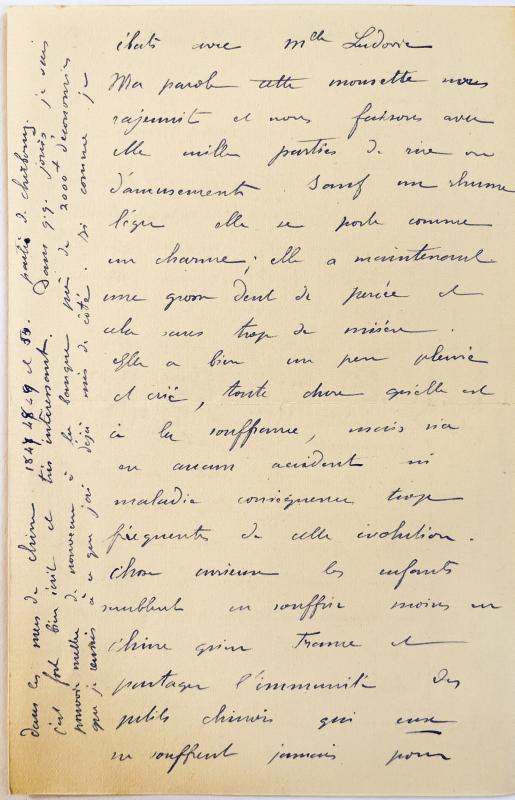 ébats avec Mlle Ludovie
Ma parole cette mousette nous
rajeunit et nous faisons avec
elle mille parties de rire ou
d'amusements Sauf un rhume
léger elle se porte comme
un charme; elle a maintenant
une grosse dent de percée et
cela sans trop de misère.
Elle a bien un peu pleuré
et crié, toute chose qu'elle est
à la souffrance, mais n'a
eu aucun accident ni
maladie conséquence trop
fréquentes de cette évolution.
Chose curieuse les enfants
semblent en souffrir moins en
Chine qu'en France et
partager l'immunité des
petits chinois qui eux
ne souffrent jamais pour
dans les mers de Chine 1847 48 49 et 50. partie de Cherbourg.
c'est fort bien écrit et très intéressant. Dans q.q. jours je vais
pouvoir mettre de nouveau à la banque près de 2000 d'économies
que je à ce que j'ai déjà mis de côté. Si comme je